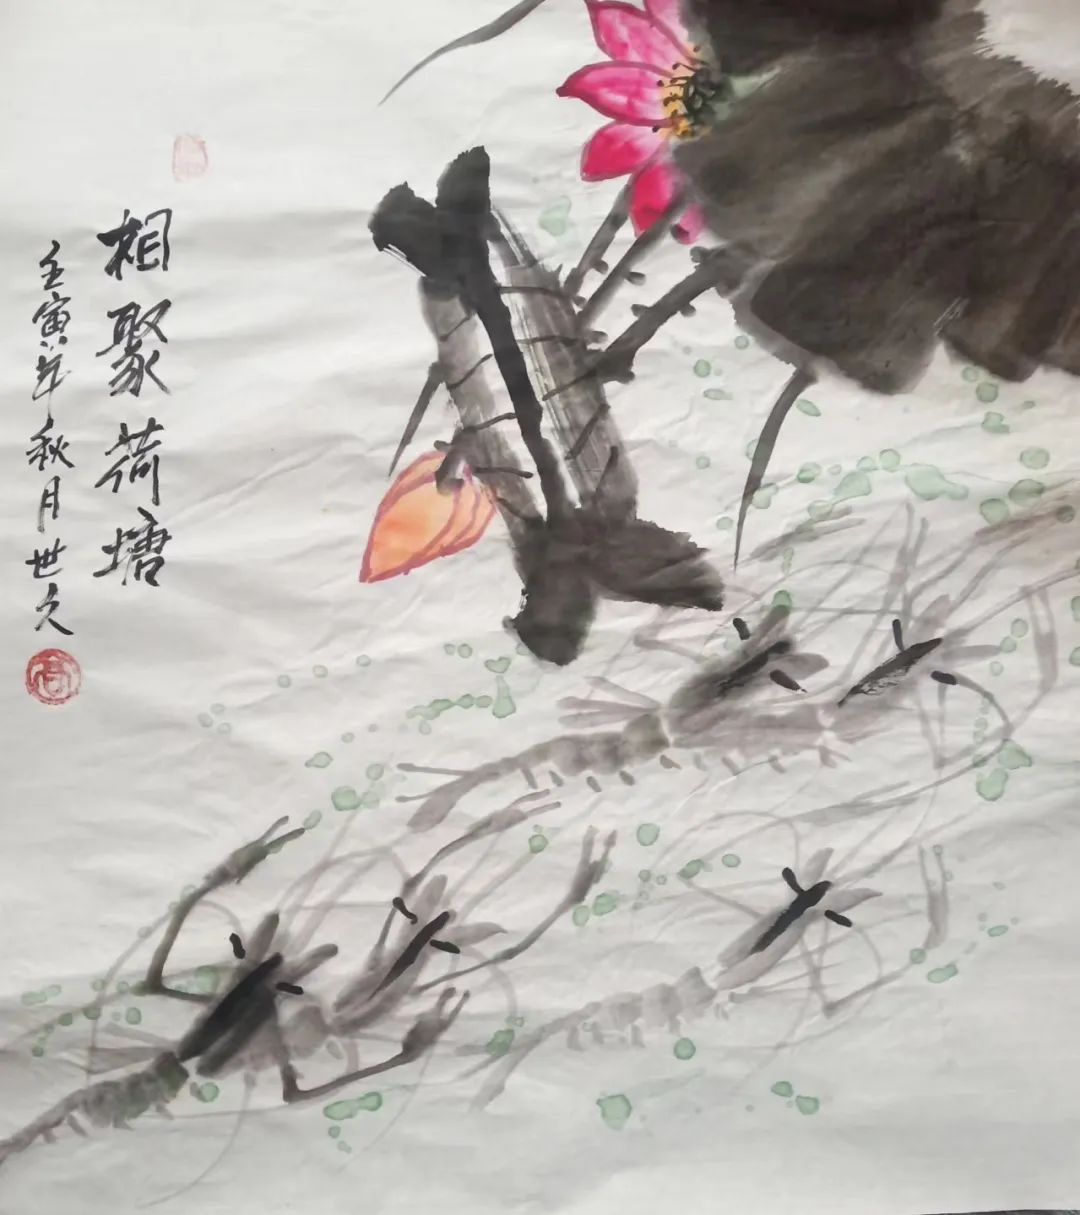 相聚荷塘
壬寅年秋月世久